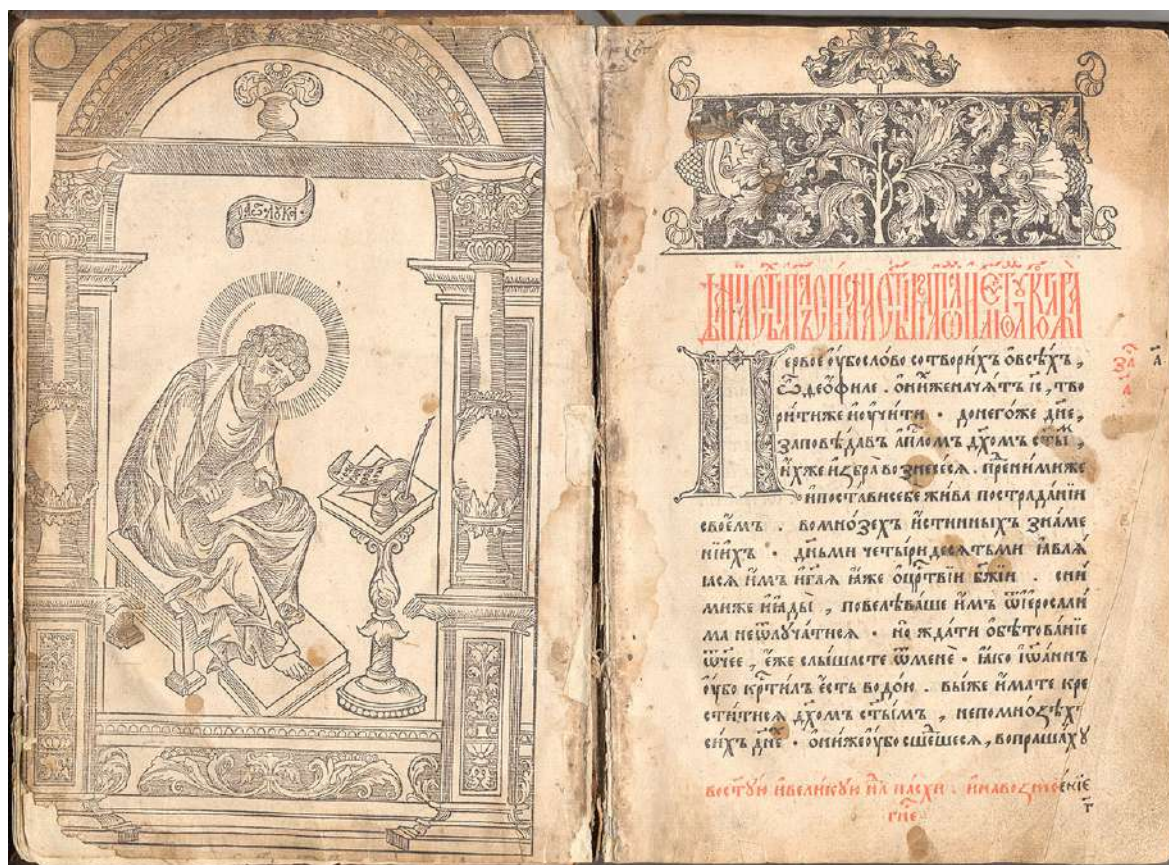 лꙋка
Первоє оубо слово сотворихъ ѡ всѣхъ ,
ѽ деѡ́филе . ѡ ни́хже начѧ́тъ і҃с , тво
ри́тиже и оучи́ти . донего́же дн҃е ,
заповѣ́давъ апⷭ҇ломъ дх҃омъ ст҃ыⷨ ,
и́хже и҆збра̀ вознесесѧ . преⷣ ни́миже
и поста́ви себе жи́ва по страда́нїи
свое́мъ . во мно́зехъ и҆́стинныхъ зна́ме
нїихъ . дн҃ьми четы́ридесѧтьми ꙗ҆влѧ́
ꙗсѧ и҆̀мъ и҆ гл҃ѧ ꙗ҆́же ѡ҆ црⷭ҇твїи бж҃їи . сни́
миже и҆ ꙗды̀ , повелѣва́ше и҆̀мъ ѿ і҆еросали́
ма не ѿлꙋча́тисѧ . но жда́ти обѣтова́нїе
ѿч҃ее , є҆́же слы́шасте ѿ менѐ . ꙗ҆́ко і҆ѡа́ннъ
оубо крⷭ҇ти́лъ є҆́сть водо́ю . вы́же и҆́мате кре
сти́тисѧ дх҃омъ ст҃ы́мъ , не по мно́зѣхъ
си́хъ дн҃еⷯ . ѡ҆ни́же оубо сше́дшесѧ , вопраша́хꙋ
во ст҃ꙋ́ю и҆ вели́кꙋю нлⷧ҇ю па́схи . и҆ на вознесе́нїе
гн҃е
заⷱ҇
а҃
а҃
г҃